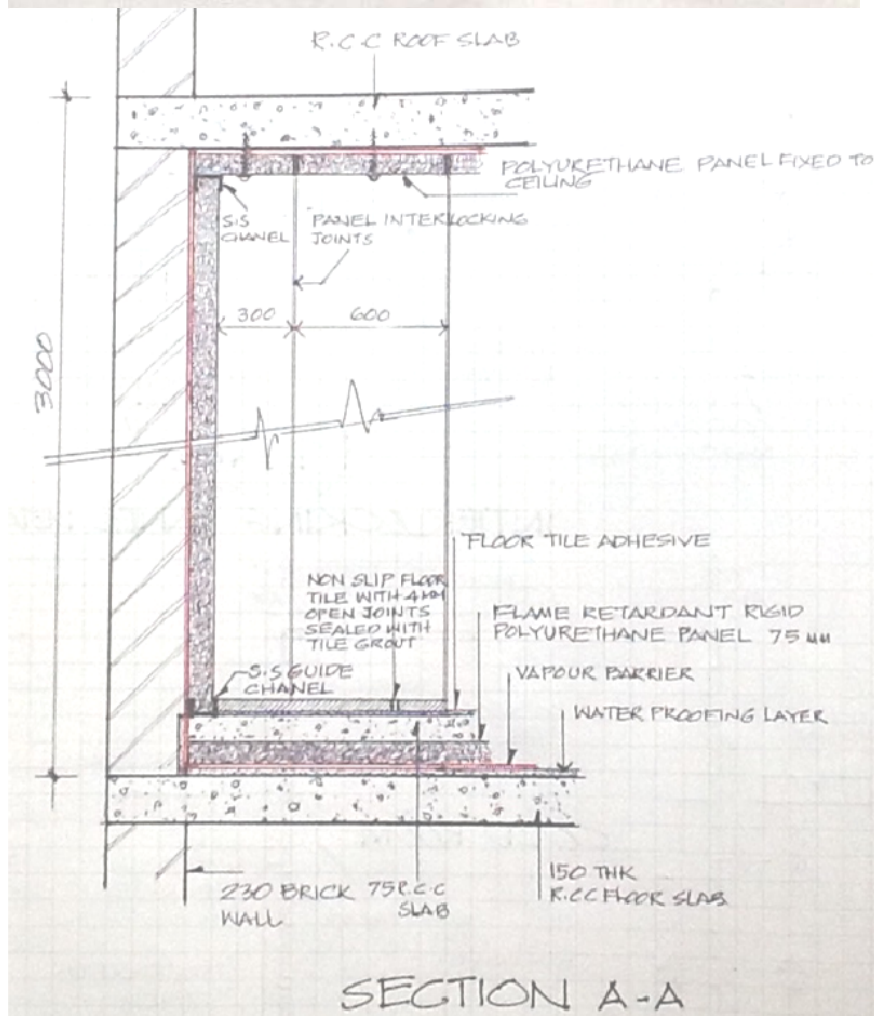 R.C.C ROOF SLAB
POLYURETHANE PANEL FIXED TO
CEILING
S.S
CHANEL
PANEL INTERLOCKING
JOINTS
300
600
3000
FLOOR TILE ADHESIVE
NON SLIP FLOOR
TILE WITH 4MM
OPEN JOINTS
SEALED WITH
TILE GROUT
FLAME RETARDANT RIGID
POLYURETHANE PANEL 75 MM
S.S GUIDE
CHANEL
VAPOUR BARRIER
WATER PROOFING LAYER
230 BRICK
WALL
75 R.C.C
SLAB
150 THK
R.C.C FLOOR SLAB
SECTION A-A